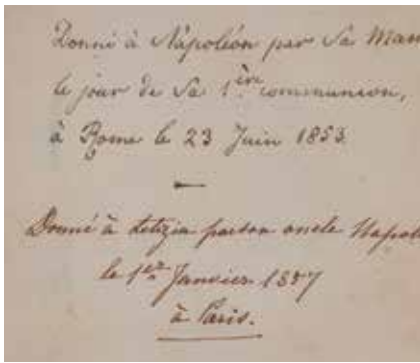 Donné à Napoléon par Sa Mam
le jour de Sa 1ère communion,
à Rome le 23 Juin 1853.
Donné à Letizia par son oncle Napol
le 1er Janvier 1857
à Paris.